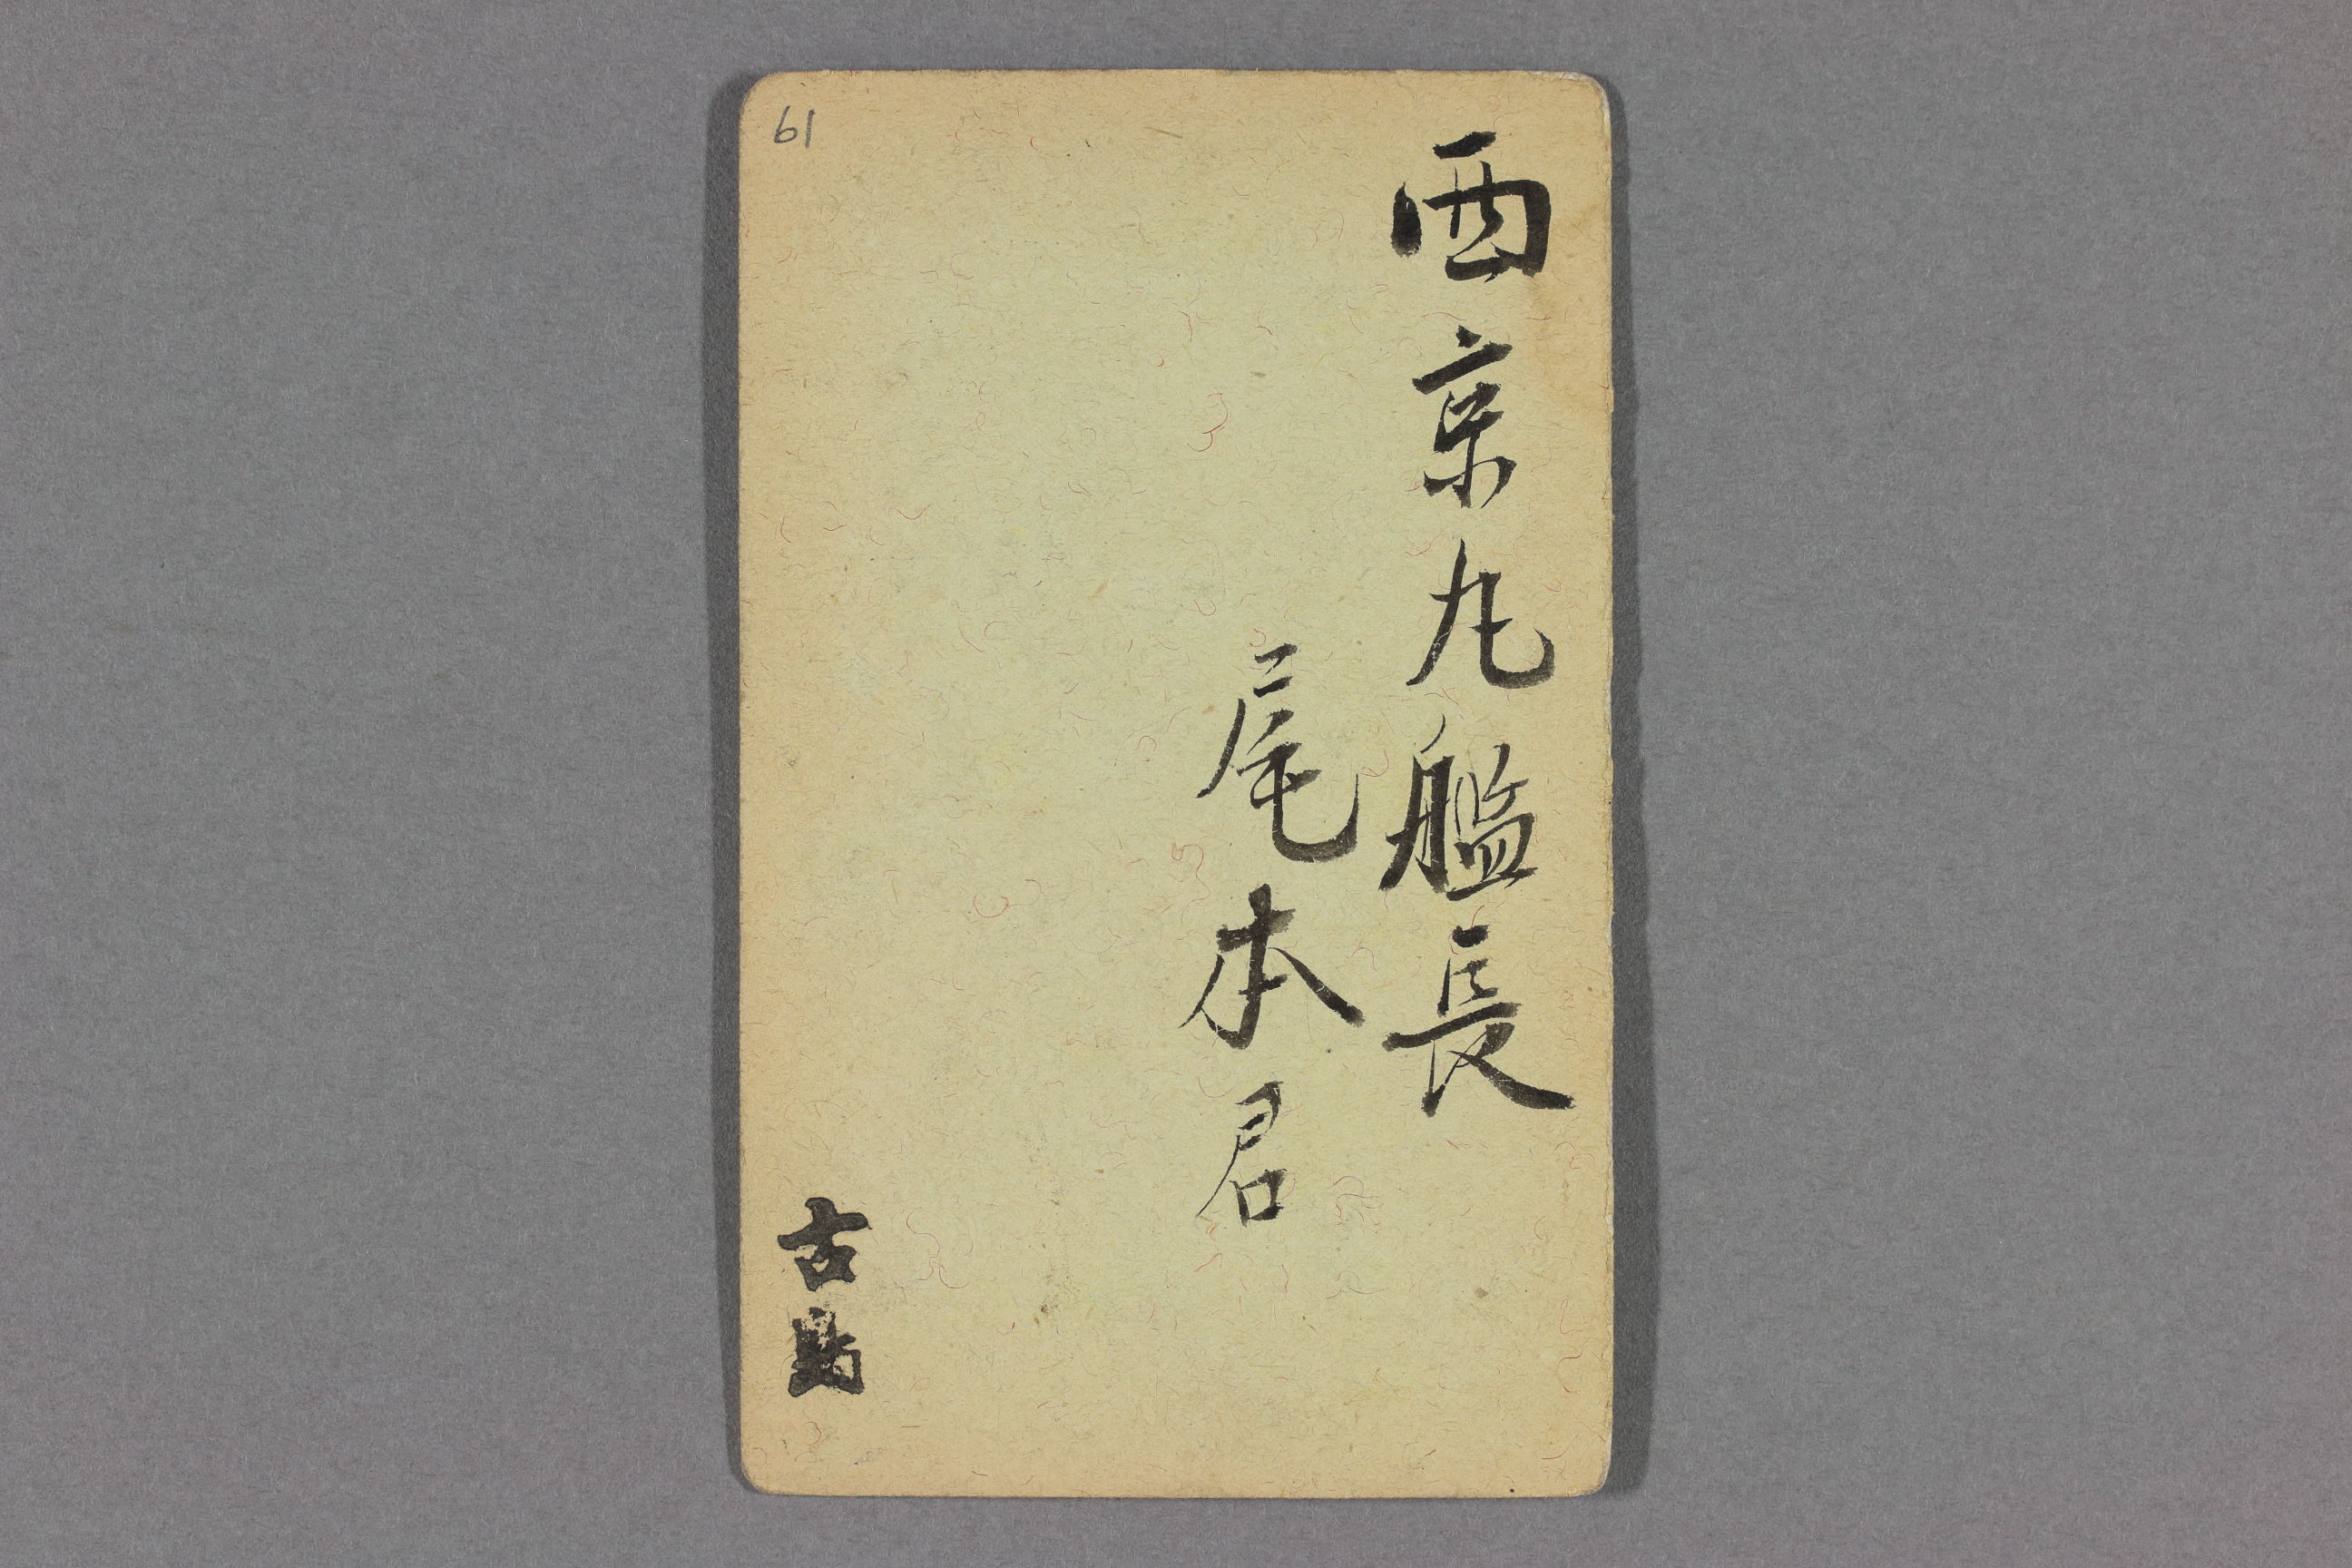 西京丸艦長
尾本君
古島
61